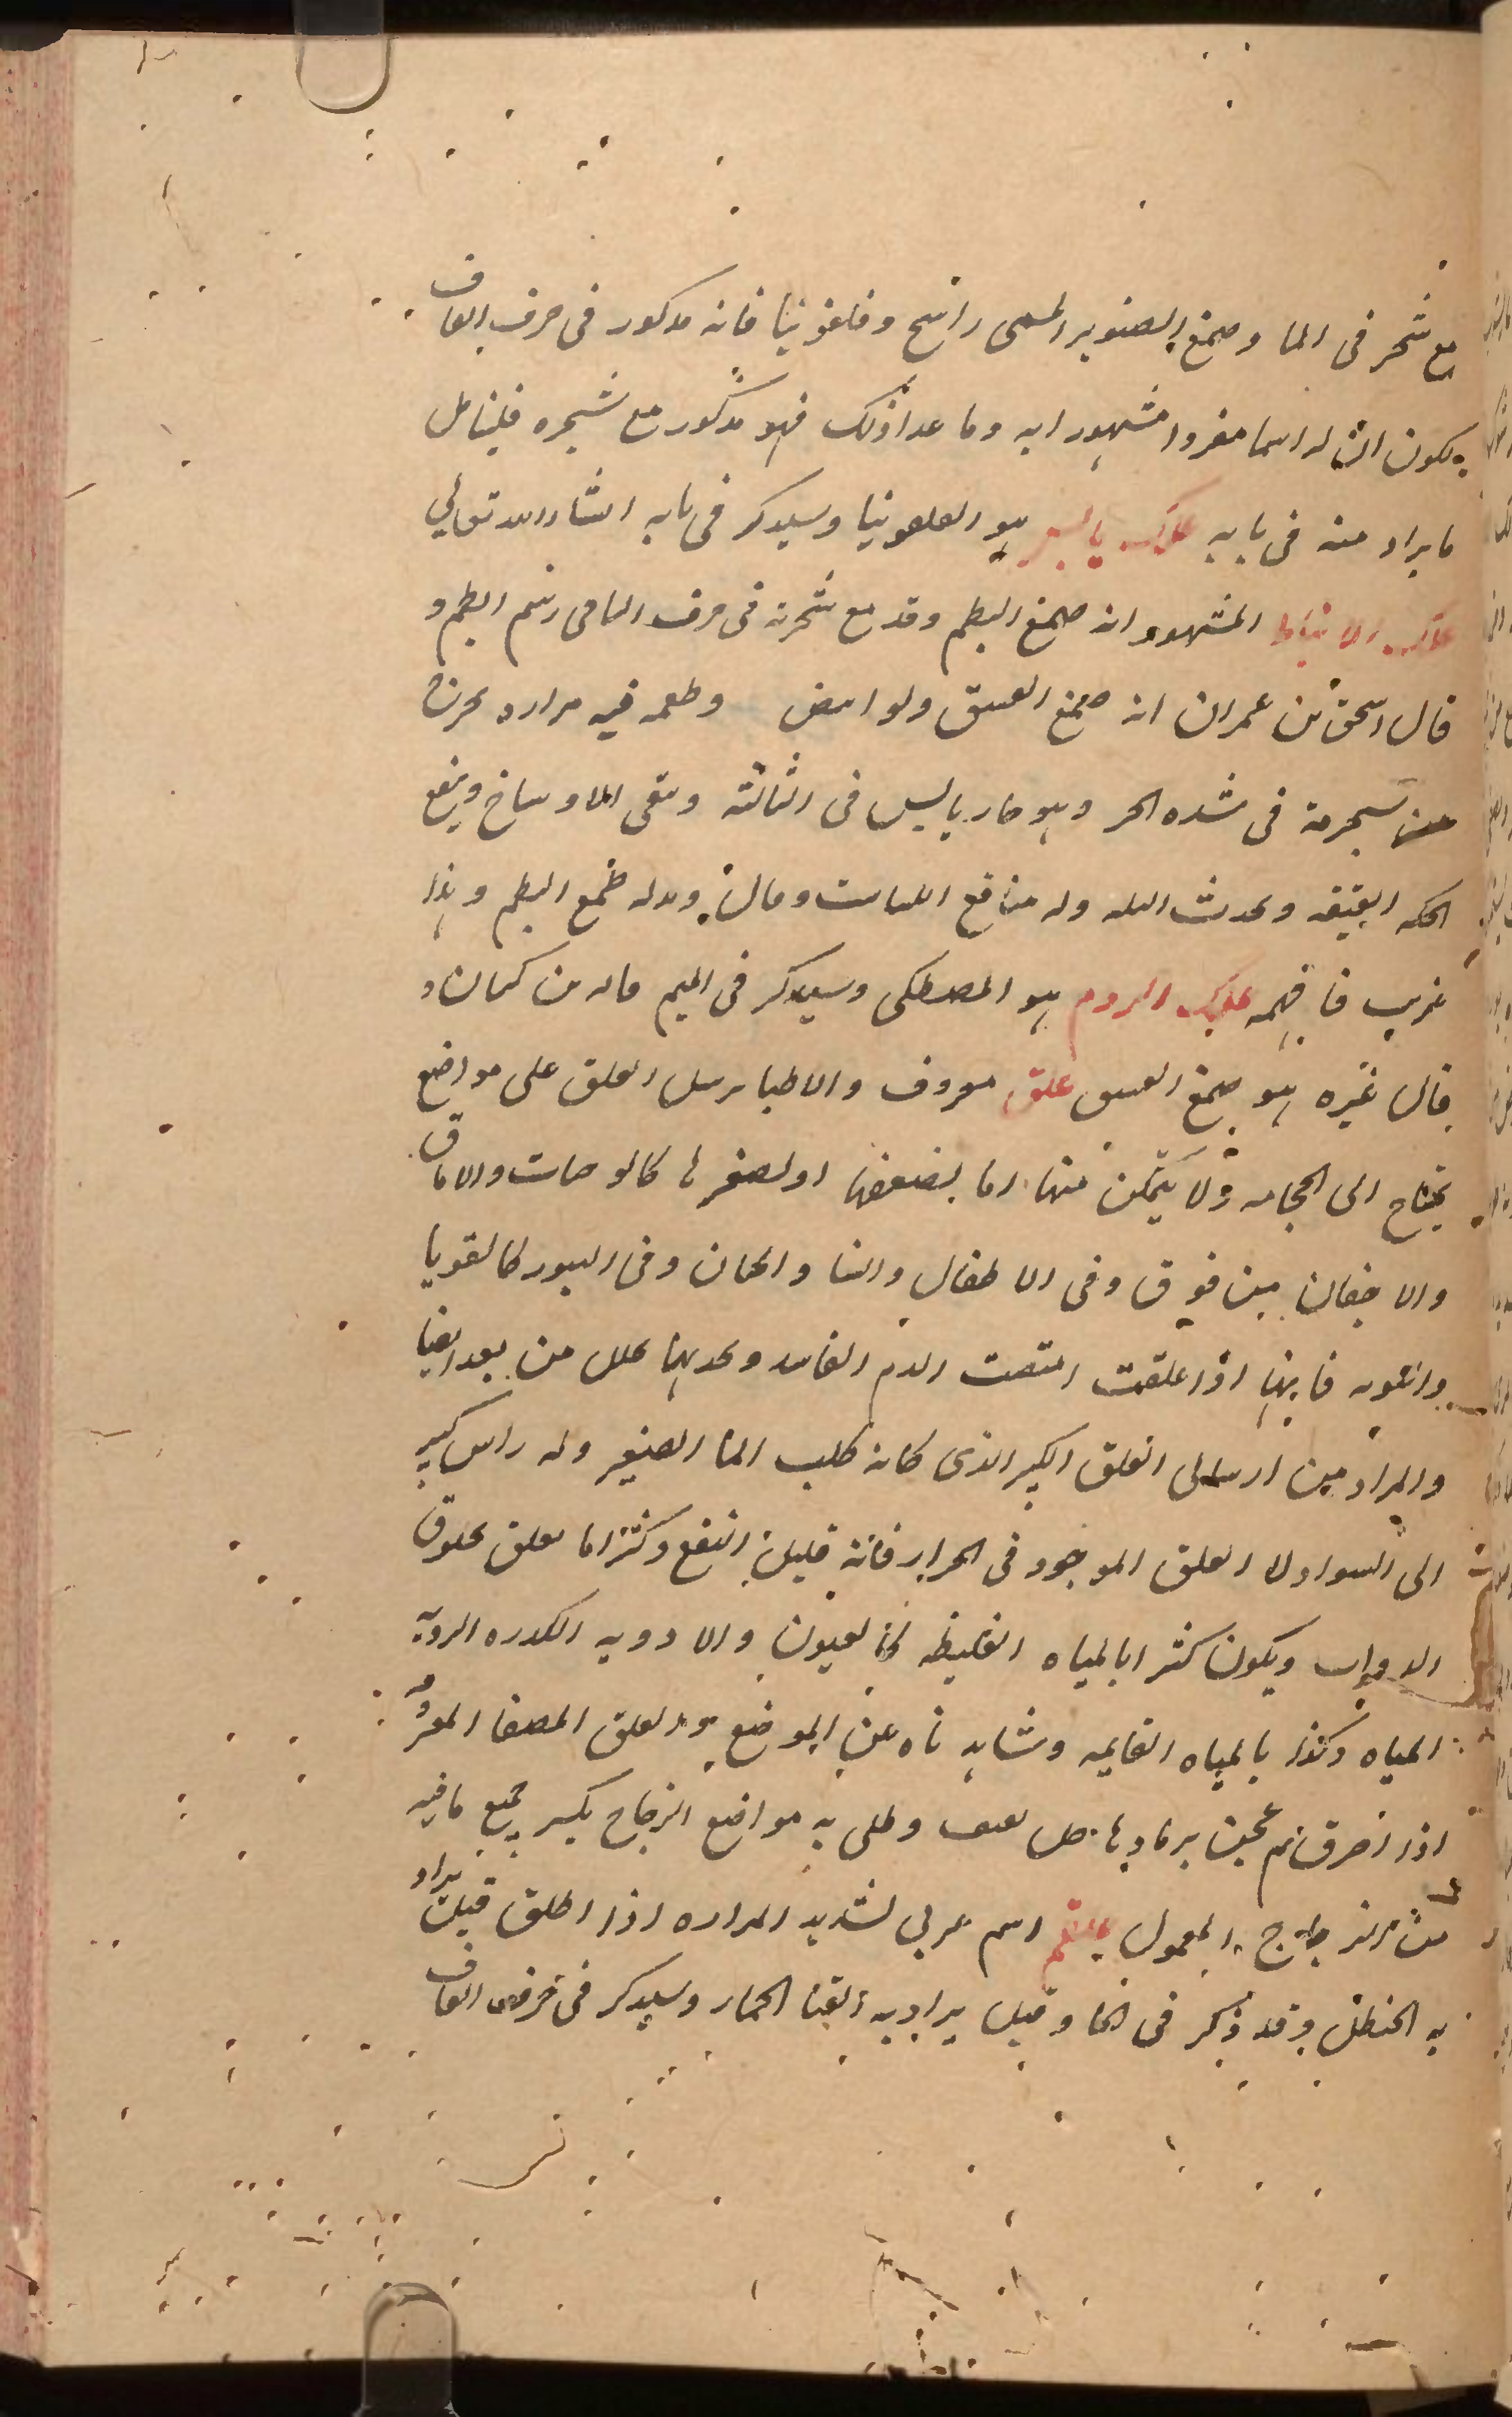 مع شجر فى الما وصمغ الصنوبر المسمى راتنج وقلفونيا فانه مذكور فى حرف القاف
لكون ان له اسما مفردا مشهورا به وما عدا ذلك فهو مذكور مع شجره فليتامل
ما يراد منه فى بابه علك يابس هو القلفونيا وسيذكر فى بابه انشاء الله تعالى
علك الانباط المشهور انه صمغ البطم وقد مع شجرته فى حرف البا فى رسم البطم و
قال اسحق بن عمران انه صمغ الفستق ولو ابيض وطعمه فيه مراره يخرج
من شجرته فى شده الحر وهو حار يابس فى الثالثة وينقى الاوساخ وينفع
الحكه العتيقه ويحدث البله وله منافع اللبان وبدله صمغ البطم وهذا
غريب فافهمه علك الروم هو المصطكى وسيذكر فى الميم
قال غيره هو صمغ الفستق علق معروف والاطبا ترسل العلق على مواضع
يحتاج الى الحجامه ولا يتمكن منها اما لضعفها او لصغرها كالوجنات والاماق
والاجفان من فوق وفى الاطفال والنسا وفى البثور كالقوبا
فانها اذا علقت امتصت الدم الفاسد
والمراد من ارسال العلق الكبير الذى كانه كلب الما الصغير وله راس كبير
الى السواد لا العلق الموجود فى الجرار فانه قليل النفع وكثيرا ما يعلق بحلوق
الدواب ويكون كثيرا بالمياه الغليظه كالعيون والاوديه الكدره الرديه
المياه وكذا بالمياه القايمه وشاهدناه عن الموضع والعلق المصفا المعروف
اذا احرق ثم عجن برمادها خل وطلى به مواضع الزجاج يكسر جميع ما فيه
من الزجاج المعمول علقم اسم عربى لشديد المراره اذا اطلق قيل يراد
به الحنظل وقد ذكر فى الحا وقيل يراد به القثا الحمار وسيذكر فى حرف القاف